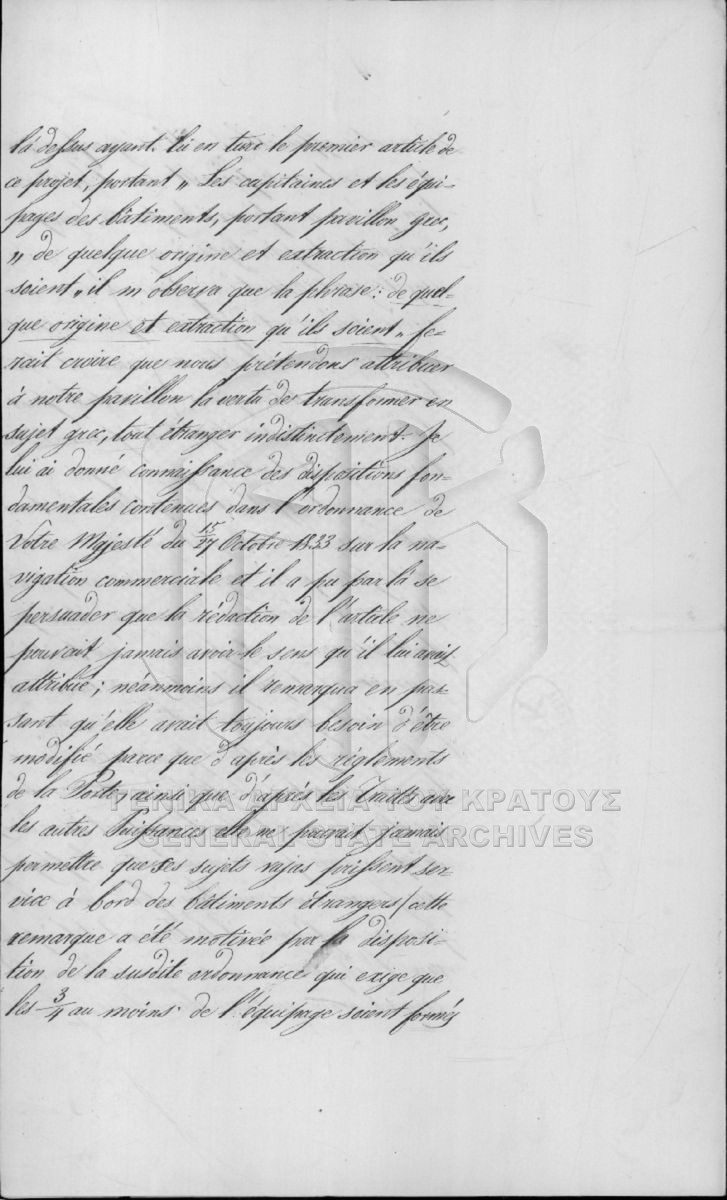 là dessus ayant lu en turc le premier article de
ce projet, portant „ Les capitaines et les équi-
pages des bâtiments, portant pavillon grec,
„ de quelque origine et extraction qu'ils
soient „ il m'observa que la phrase: de quel-
que origine et extraction qu'ils soient „ fe-
rait croire que nous prétendons attribuer
à notre pavillon la vertu de transformer en
sujet grec, tout étranger indistinctement. Je
lui ai donné connaissance des dispositions fon-
damentales contenues dans l'ordonnance de
Votre Majesté du 15/27 Octobre 1833 sur la na-
vigation commerciale et il a pu par là se
persuader que la rédaction de l'article ne
pouvait jamais avoir le sens qu'il lui avait
attribué; néanmoins il remarqua en pas-
sant qu'elle avait toujours besoin d'être
modifié parce que d'après les règlements
de la Porte ainsi que d'après les Traités avec
les autres Puissances elle ne pouvait jamais
permettre que ses sujets rajas prissent ser-
vice à bord des bâtiments étrangers / cette
remarque a été motivée par la disposi-
tion de la susdite ordonnance qui exige que
les 3/4 au moins de l'équipage soient formés
ΓΕΝΙΚΑ ΑΡΧΕΙΑ ΤΟΥ ΚΡΑΤΟΥΣ
GENERAL STATE ARCHIVES